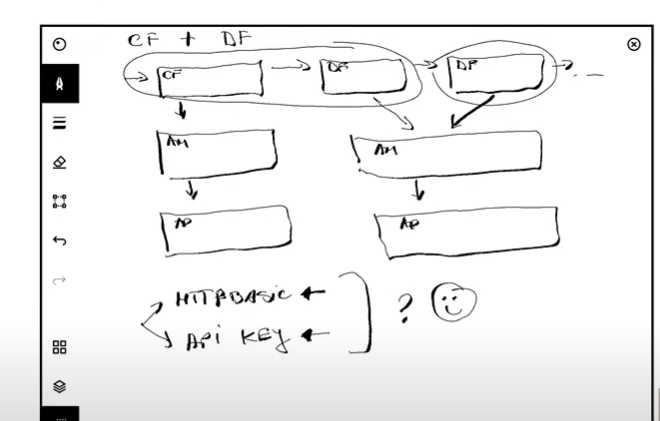 CF + DF
CF DF DF
AM AM
AP AP
HTTPBASIC
API KEY ?